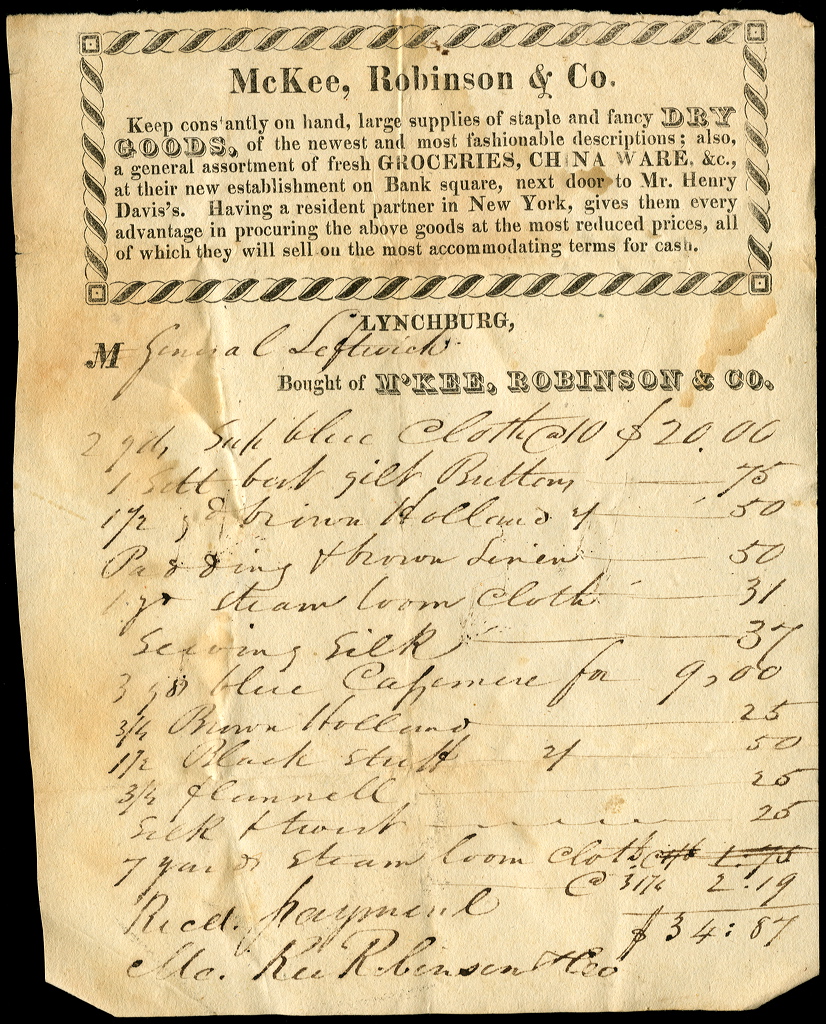 McKee, Robinson & Co.
Keep constantly on hand, large supplies of staple and fancy DRY
GOODS, of the newest and most fashionable descriptions; also,
a general assortment of fresh GROCERIES, CHINA WARE, &c.,
at their new establishment on Bank square, next door to Mr. Henry
Davis's. Having a resident partner in New York, gives them every
advantage in procuring the above goods at the most reduced prices, all
of which they will sell on the most accommodating terms for cash.
LYNCHBURG,
M General Leftwich
Bought of M'KEE, ROBINSON & CO.
2 yds Sup blue Cloth @10 $20.00
1 Sett best gilt Buttons 75
1 1/2 yd brown Holland 50
Padding & brown Linen 50
1 yd Steam loom Cloth 31
Sewing Silk 37
3 yds blue Cassimere for 9,00
3/4 Brown Holland 25
1 1/2 Black Stuff 50
3/4 flannell 25
Silk & twist 25
7 yards Steam loom Cloth
@ 31 1/4 2.19
Recd. payment $34:87
Mc. Kee Robinson & Co